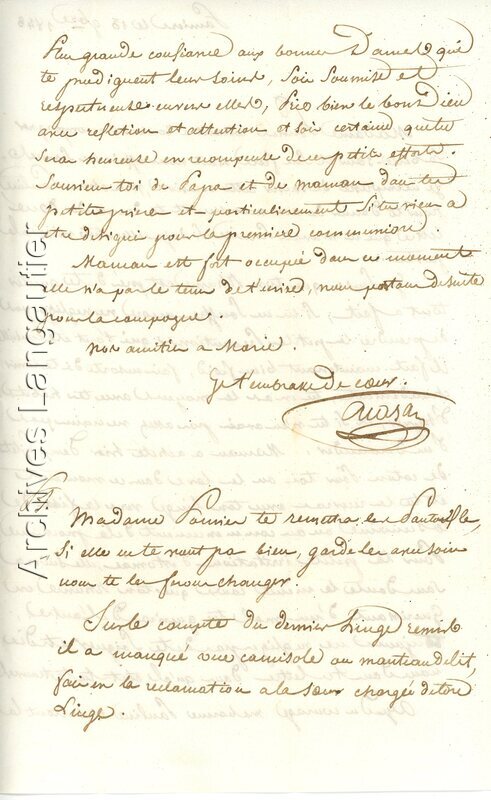 grande confiance aux bonnes Dames qui
te prodiguent leurs soins, sois soumise et
respectueuse envers elles, Prie bien le bon Dieu
avec reflection et attention et sois certaine que tu
sera heureuse en recompense de ces petits efforts.
Souviens toi de Papa et de maman dans tes
petites prieres et particulierement si tu viens a
etre designée pour la premiere communion.
Maman est fort occupée dans ce moment
elle n'a pas le tems de t'ecrire, nous partons de suite
pour la campagne.
nos amitiés a Marie.
Je t'embrasse de cœur.
Madame Pomier te remettra les Pantouffles,
Si elle ne te vont pas bien, garde les avec soin
nous te les ferons changer.
Sur le compte du dernier Linge remis
il a manqué une camisole ou manteau de lit,
fais en la reclamation a la sœur chargée de votre
Linge.
Archives Langautier